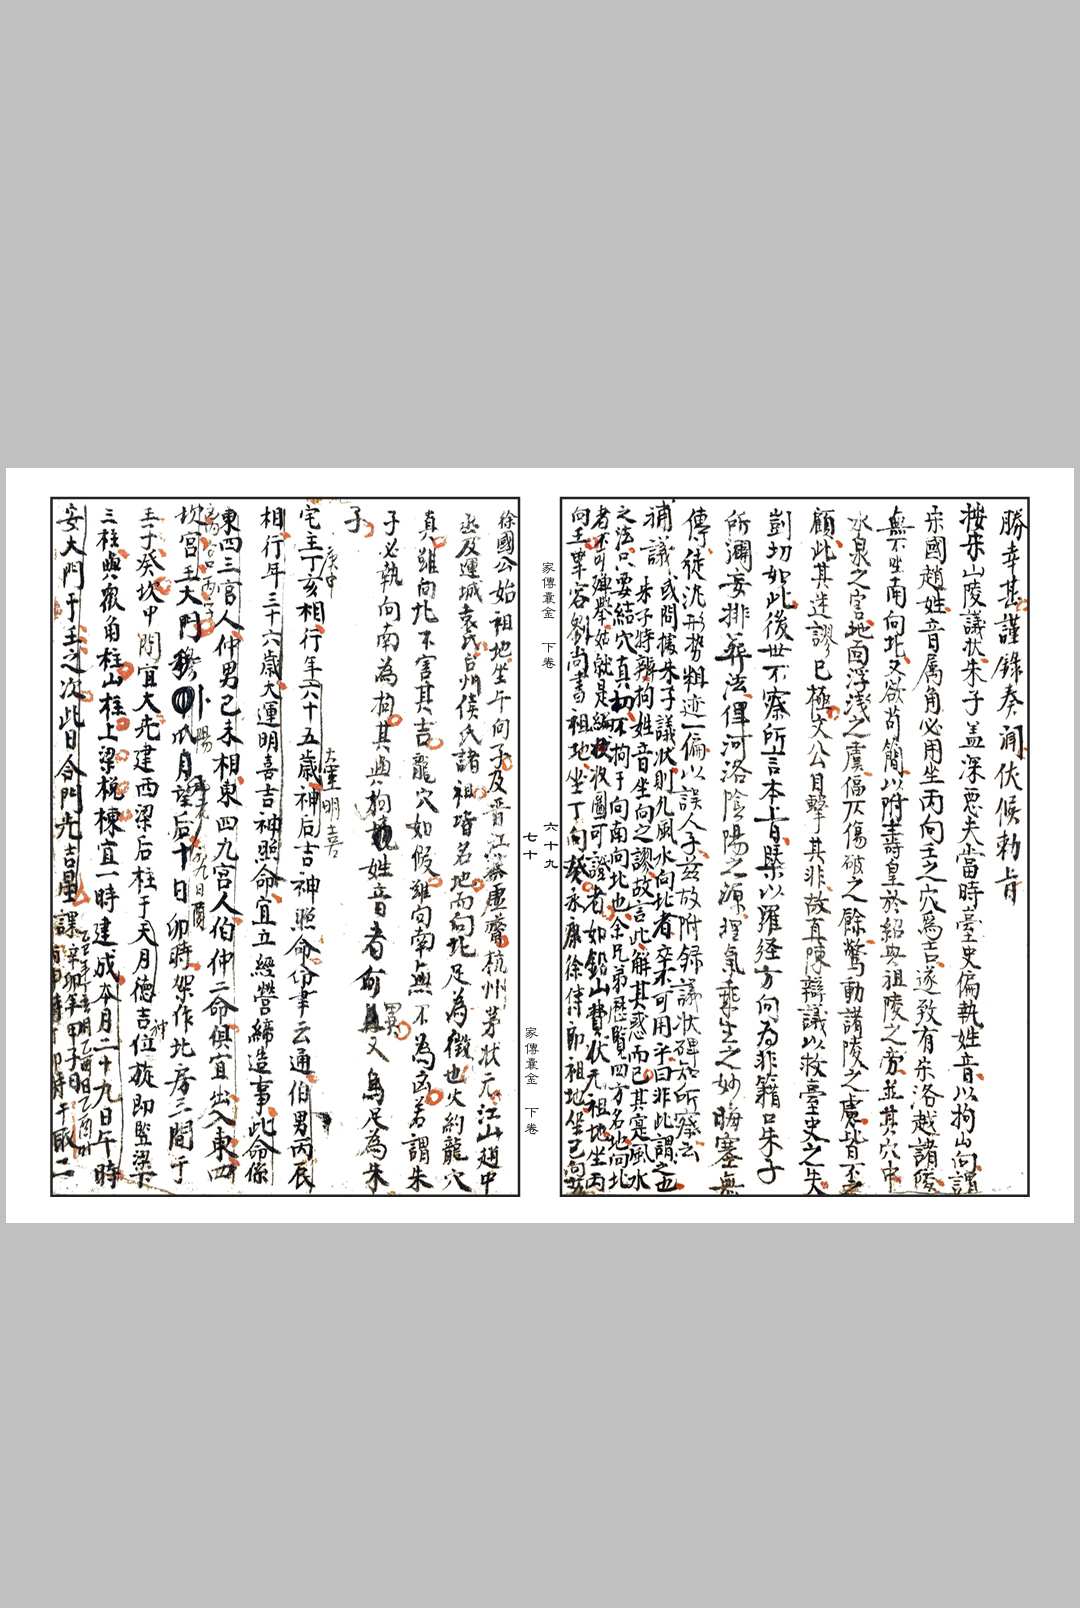 勝幸甚謹錄奏聞伏候勅旨
按朱山陵議狀朱子盖深惡夫當時臺史偏執姓音以拘山向謂
宋國趙姓音属角必用坐丙向壬之穴爲吉遂致有宋洛越諸陵
無不坐南向北又欲苟簡以附壽皇於紹興祖陵之旁並其穴中
水泉之害地面浮淺之虞偪仄傷破之餘驚動諸陵之虞皆不之
顧此其迷謬已極文公目擊其非故直陳辯議以救臺史之失
剴切如此後世不察所言本旨槩以羅經方向為非籍口朱子
所謂妄排葬法俾河洛陰陽之源理氣乘生之妙晦塞無
傳徒泥形势粗迹一偏以誤人子兹故附錄議狀碑於所察云
補議或問據朱子議狀則凡風水向北者卒不可用乎曰非此謂之也
朱子特辨拘姓音坐向之謬故言此解其惑而已其寔風水
之法只要結穴真切不拘于向南向北也余兄弟歷覽四方名地向北
者不可殫舉姑就是編收圖可證者如鉛山費狀元祖地坐丙
向壬單容劉尚書祖地坐丁向癸永康徐侍郎祖地坐巳向亥
徐國公始祖地坐午向子及晋江蔡虛齋杭州茅狀元江山趙中
丞及運城袁氏台州侯氏諸祖皆名地而向北足為徵也大約龍穴
真雖向北不害其吉龍穴如假雖向南無不為凶若謂朱
子必執向南為拘其過拘姓音者何異又烏足為朱
子
宅主丁亥相行年六十五歲神后吉神照命仰聿云通伯男丙辰
庚申
大運明喜
相行年三十六歲大運明喜吉神照命宜立經營締造事此命係
東四三宮人仲男己未相東四九宮人伯仲二命俱宜出入東西
坎宮壬大門卦氏月望后十日卯時架作北房二間于
壬子癸坎中間宜大先建西梁后柱于天月德吉位旋即竪梁下
三柱與衆角柱山柱上梁梲棟宜一時建成本月二十九日午時
安大門于壬之次此日合門光吉星課